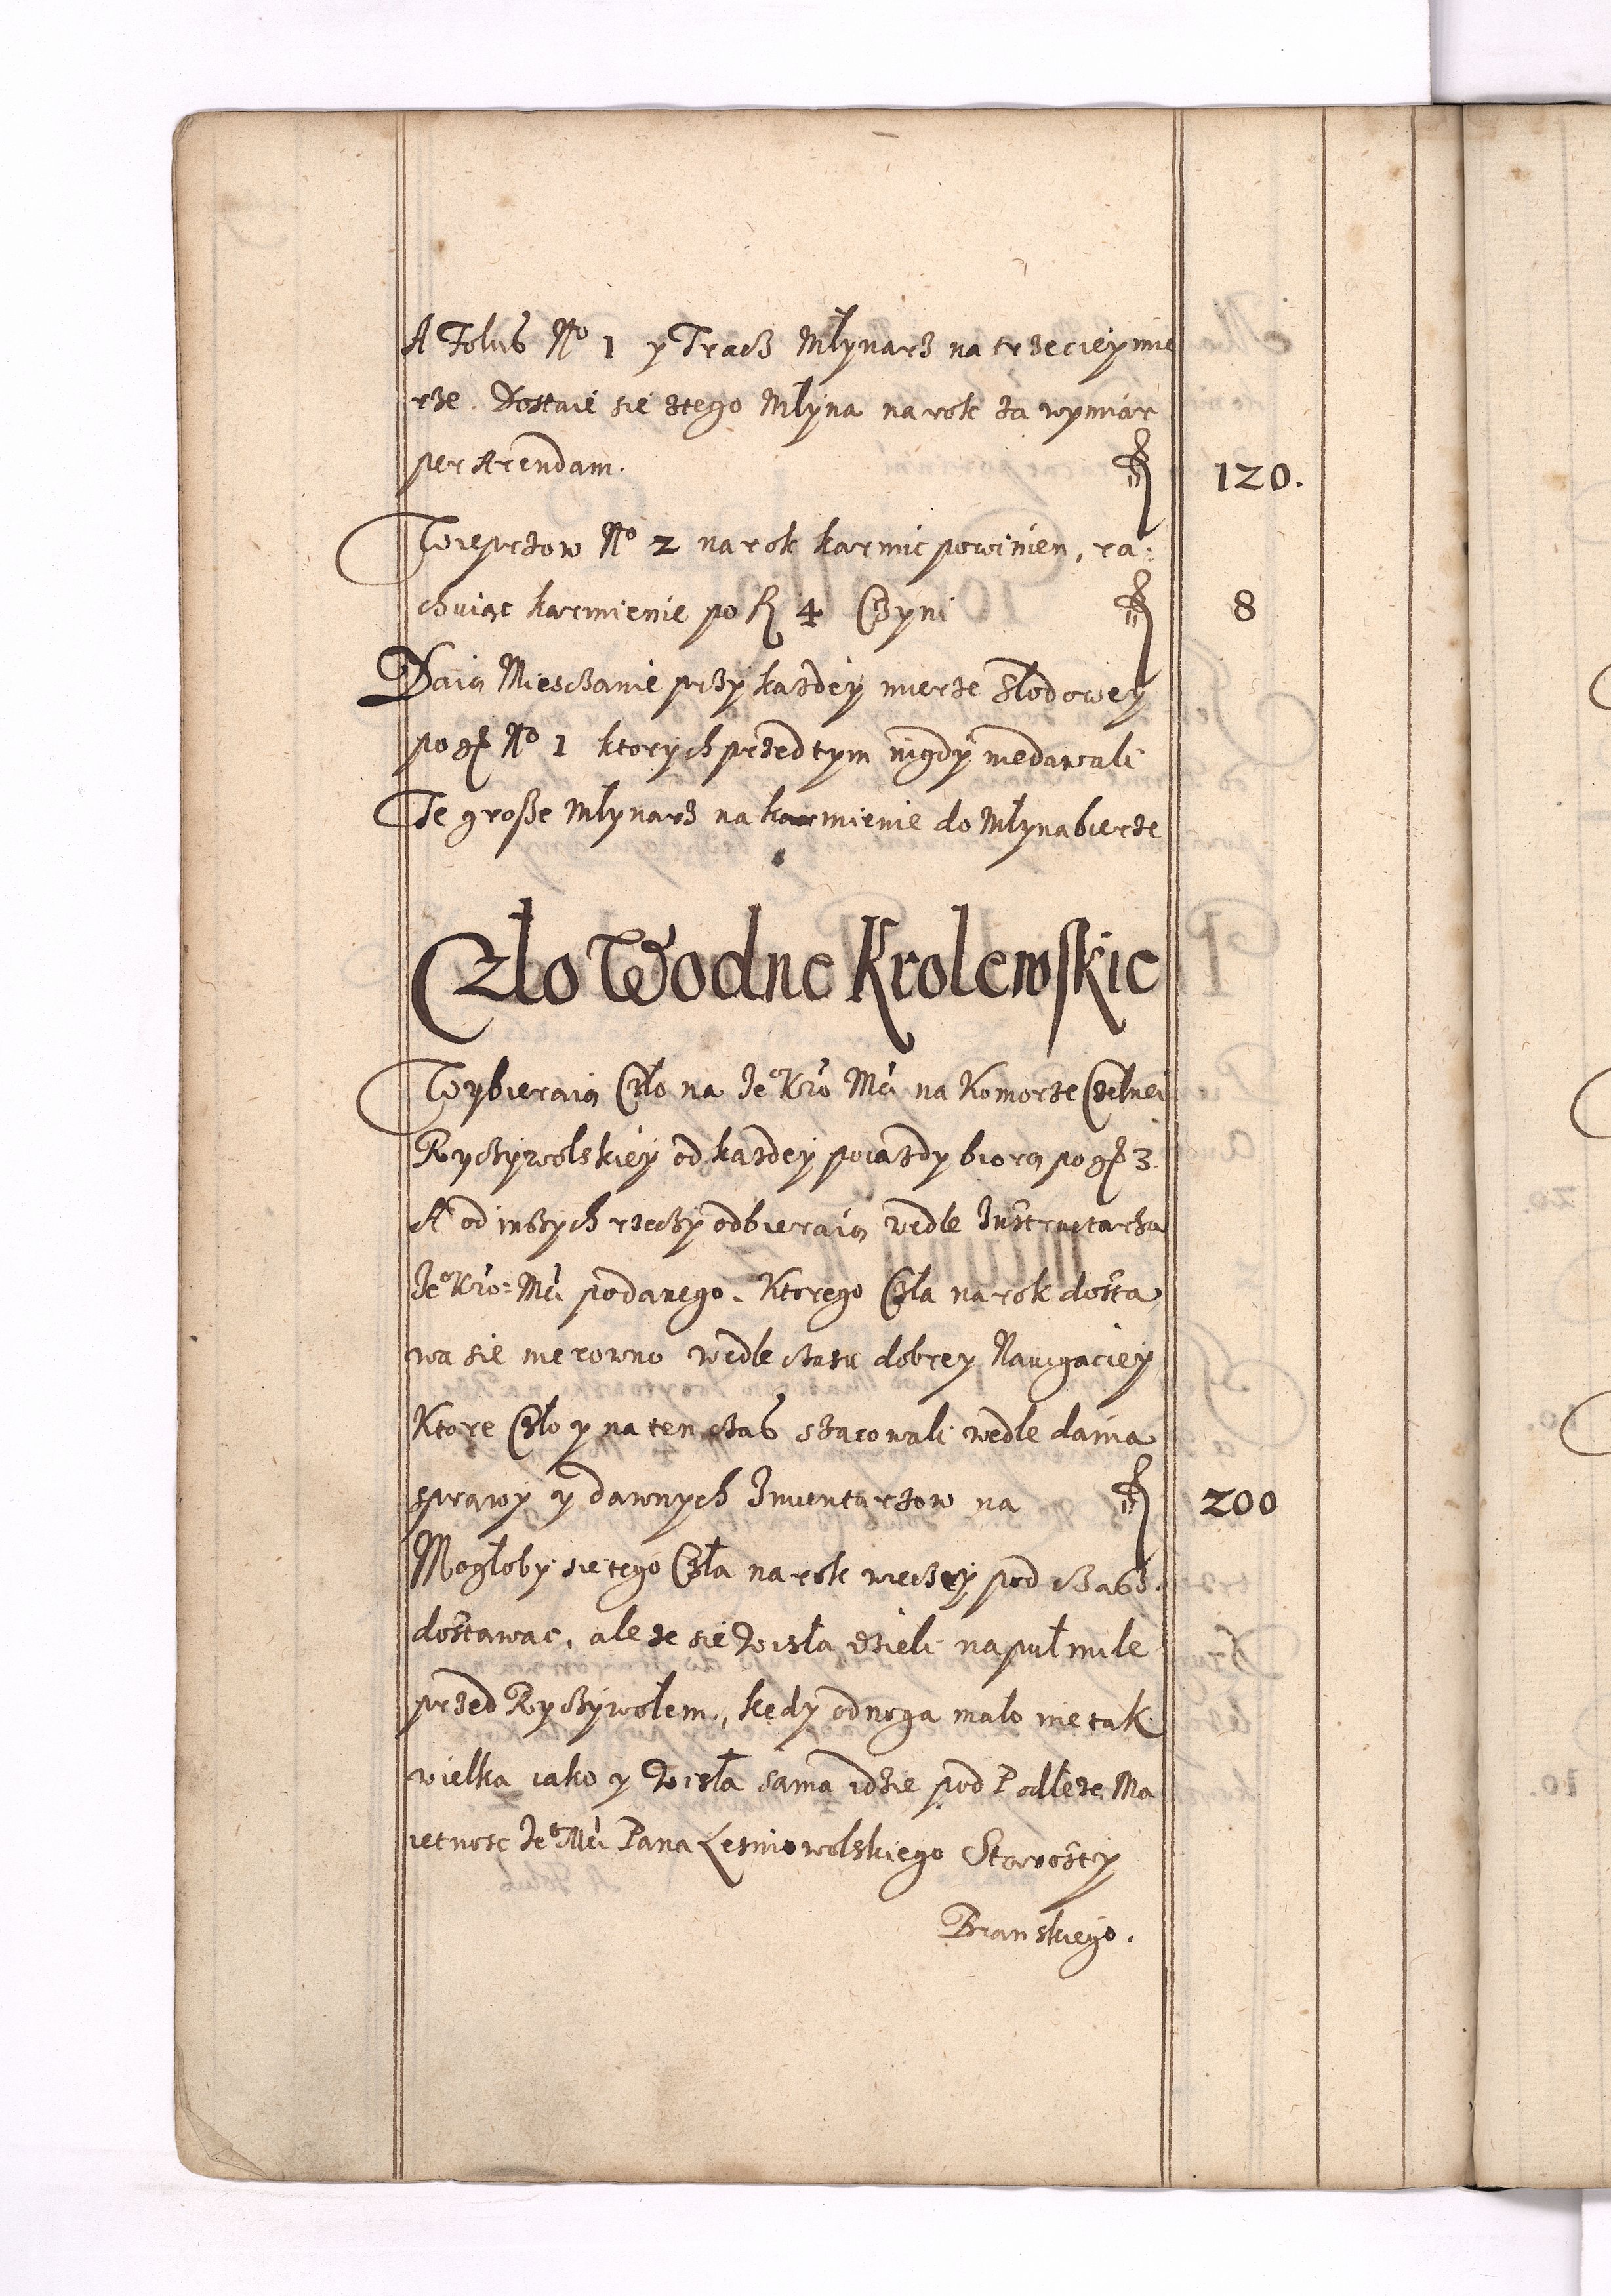 A Foluś No 1 y Tracz Młynarz na trzeciey mie
rze. Dostaie się z tego Młyna na rok za wymiar
per Arendam. fl 120.
Wieprzow No 2 na rok karmic powinien, ra:
chuiąc karmienie po fl 4 Czyni fl 8
Daią Miesczanie przy każdey mierze słodowey
po gr No 1 ktorych przed tym nigdy niedawali
Te grosze Młynarz na karmienie do Młyna bierze
Czło Wodne Krolewskie
Wybieraią Czło na Je° Kró Mći na Komorze Czelnei
Ryczywolskiey od każdey poiazdy biorą po gr 3.
A od inszych rzeczy odbieraią wedle Instructarza
Je° Kró: Mći podanego. Ktorego Czła na rok dosta
wa się nierowno wedle czasu dobrey Nawigaciey
Ktore Czło y na ten czas szacowali wedle dania
sprawy y dawnych Inwentarzow na fl 200
Mogłoby się tego Czła na rok wieczey pod czas
dostawac, ale że się Wisła dzieli na puł mile
przed Ryczywolem, kędy odnoga mało nie tak
wielka iako y Wisła sama idzie pod Podleże Ma
ietnosc Je° Mći Pana Lesniowolskiego Starosty
Branskiego.